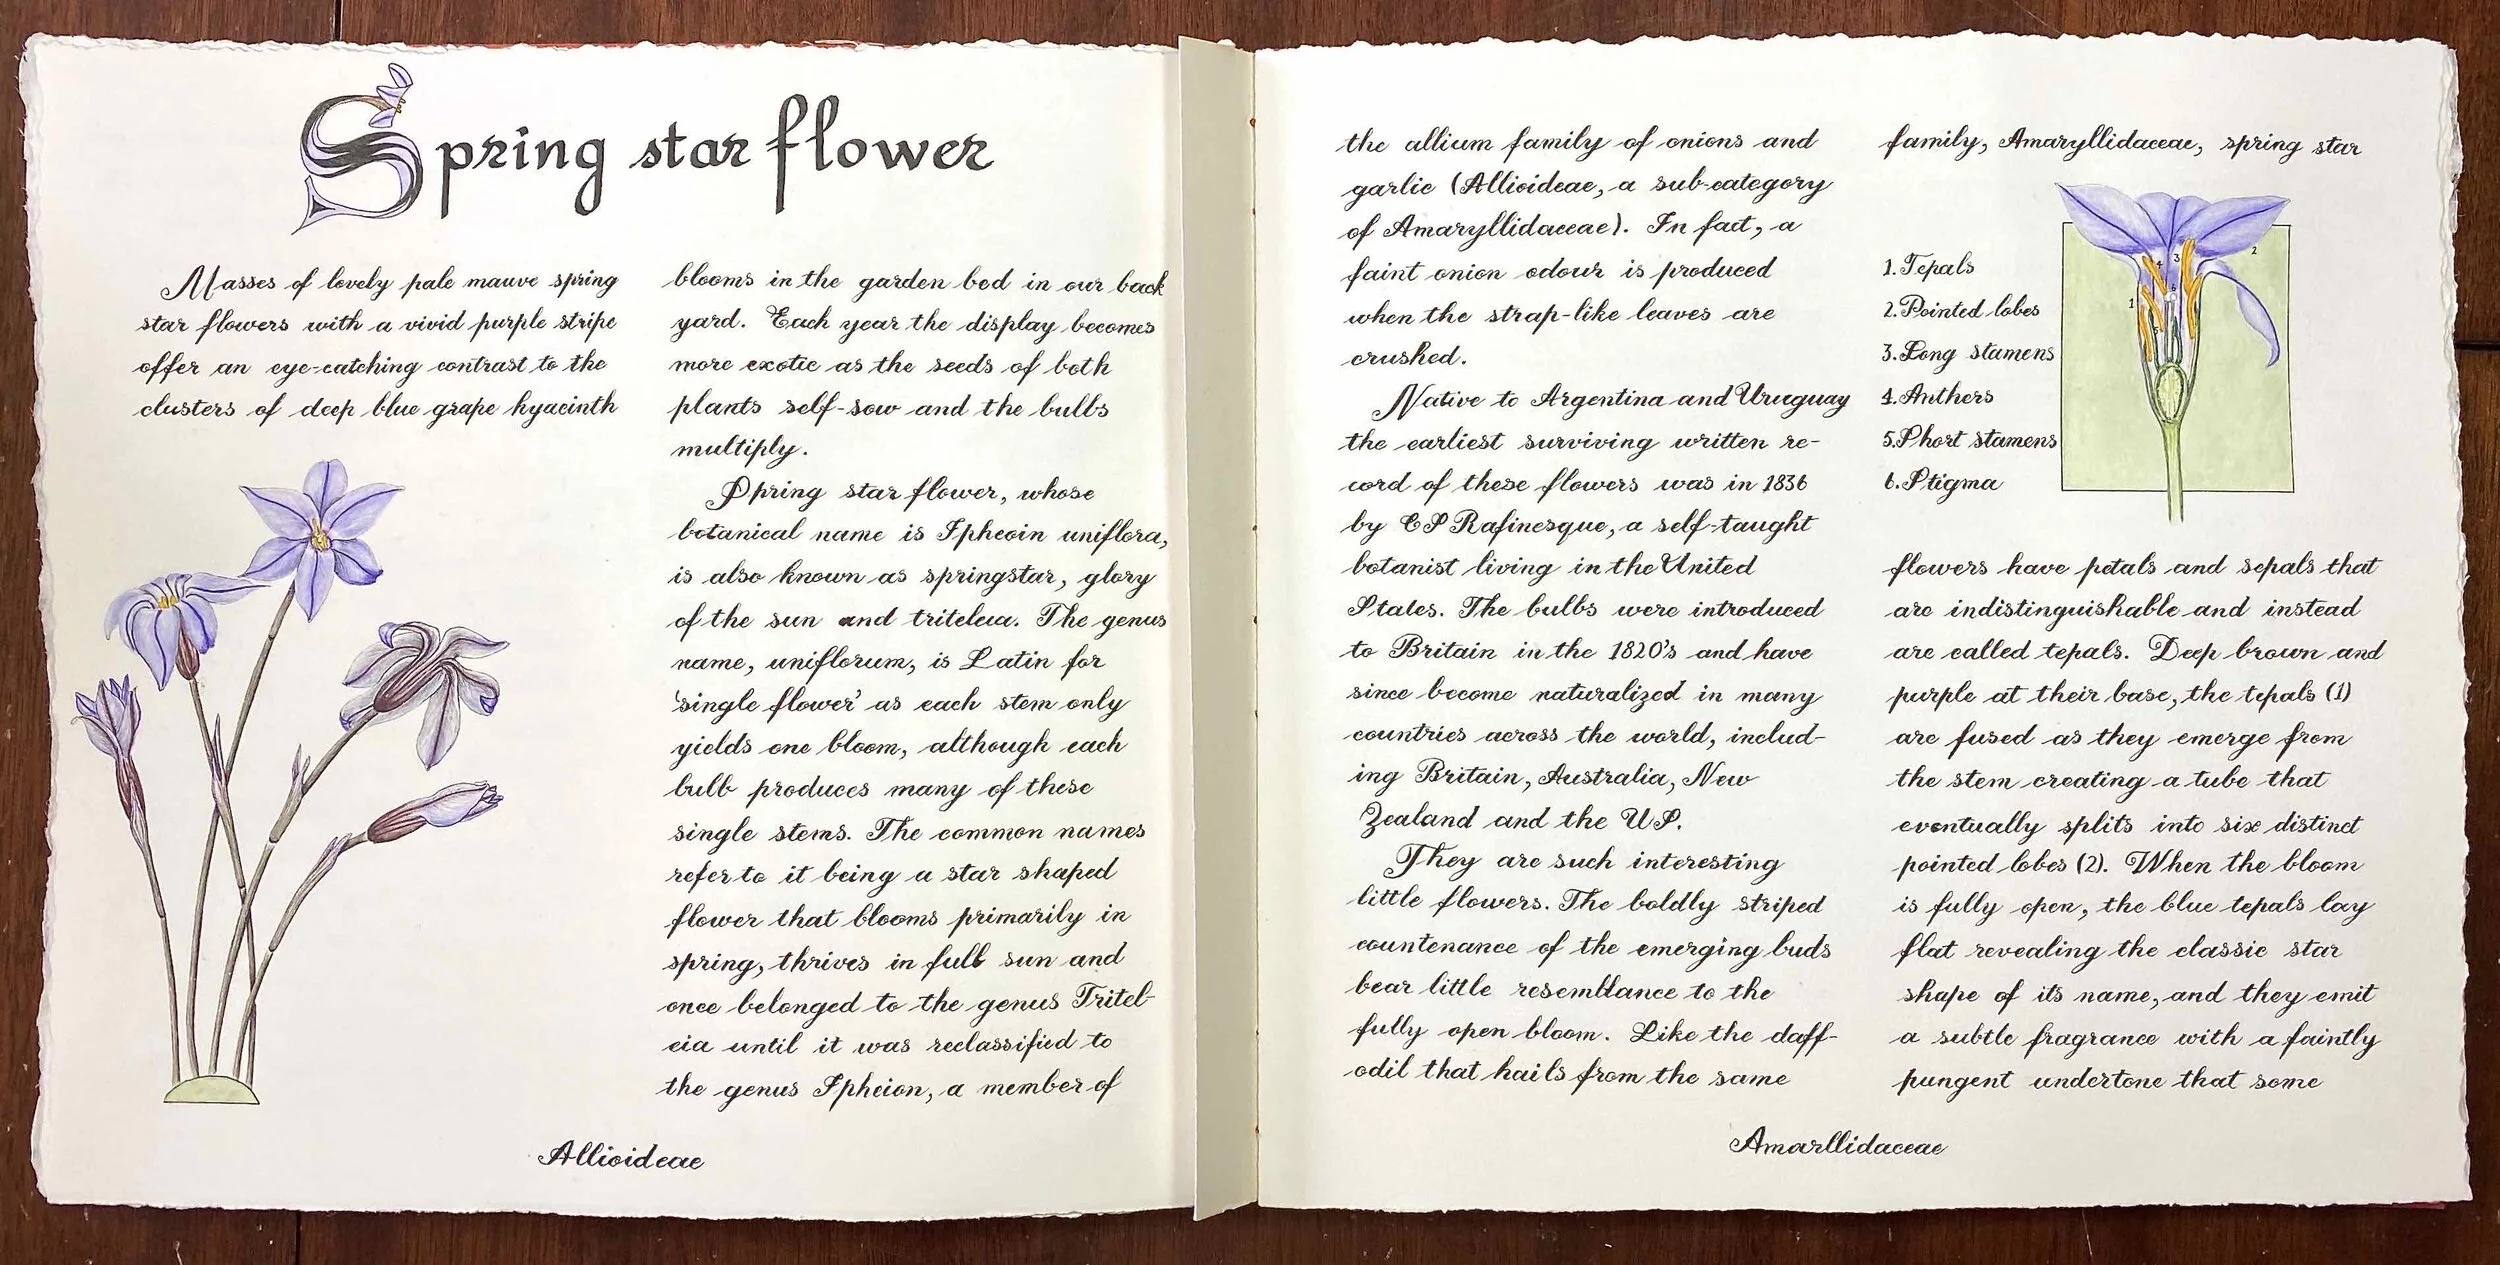 Spring star flower
Masses of lovely pale mauve spring
star flowers with a vivid purple stripe
offer an eye-catching contrast to the
clusters of deep blue grape hyacinth
blooms in the garden bed in our back
yard. Each year the display becomes
more exotic as the seeds of both
plants self-sow and the bulbs
multiply.
Spring star flower, whose
botanical name is Ipheoin uniflora,
is also known as springstar, glory
of the sun and triteleia. The genus
name, uniflorum, is Latin for
'single flower' as each stem only
yields one bloom, although each
bulb produces many of these
single stems. The common names
refer to it being a star shaped
flower that blooms primarily in
spring, thrives in full sun and
once belonged to the genus Tritel-
eia until it was reclassified to
the genus Ipheion, a member of
Allioideae
the allium family of onions and
garlic (Allioideae, a sub-category
of Amaryllidaceae). In fact, a
faint onion odour is produced
when the strap-like leaves are
crushed.
Native to Argentina and Uruguay
the earliest surviving written re-
cord of these flowers was in 1836
by CS Rafinesque, a self-taught
botanist living in the United
States. The bulbs were introduced
to Britain in the 1820's and have
since become naturalized in many
countries across the world, includ-
ing Britain, Australia, New
Zealand and the US.
They are such interesting
little flowers. The boldly striped
countenance of the emerging buds
bear little resemblance to the
fully open bloom. Like the daff-
odil that hails from the same
family, Amaryllidaceae, spring star
1. Tepals
2. Pointed lobes
3. Long stamens
4. Anthers
5. Short stamens
6. Stigma
1
2
3
4
5
6
flowers have petals and sepals that
are indistinguishable and instead
are called tepals. Deep brown and
purple at their base, the tepals (1)
are fused as they emerge from
the stem creating a tube that
eventually splits into six distinct
pointed lobes (2). When the bloom
is fully open, the blue tepals lay
flat revealing the classic star
shape of its name, and they emit
a subtle fragrance with a faintly
pungent undertone that some
Amarllidaceae